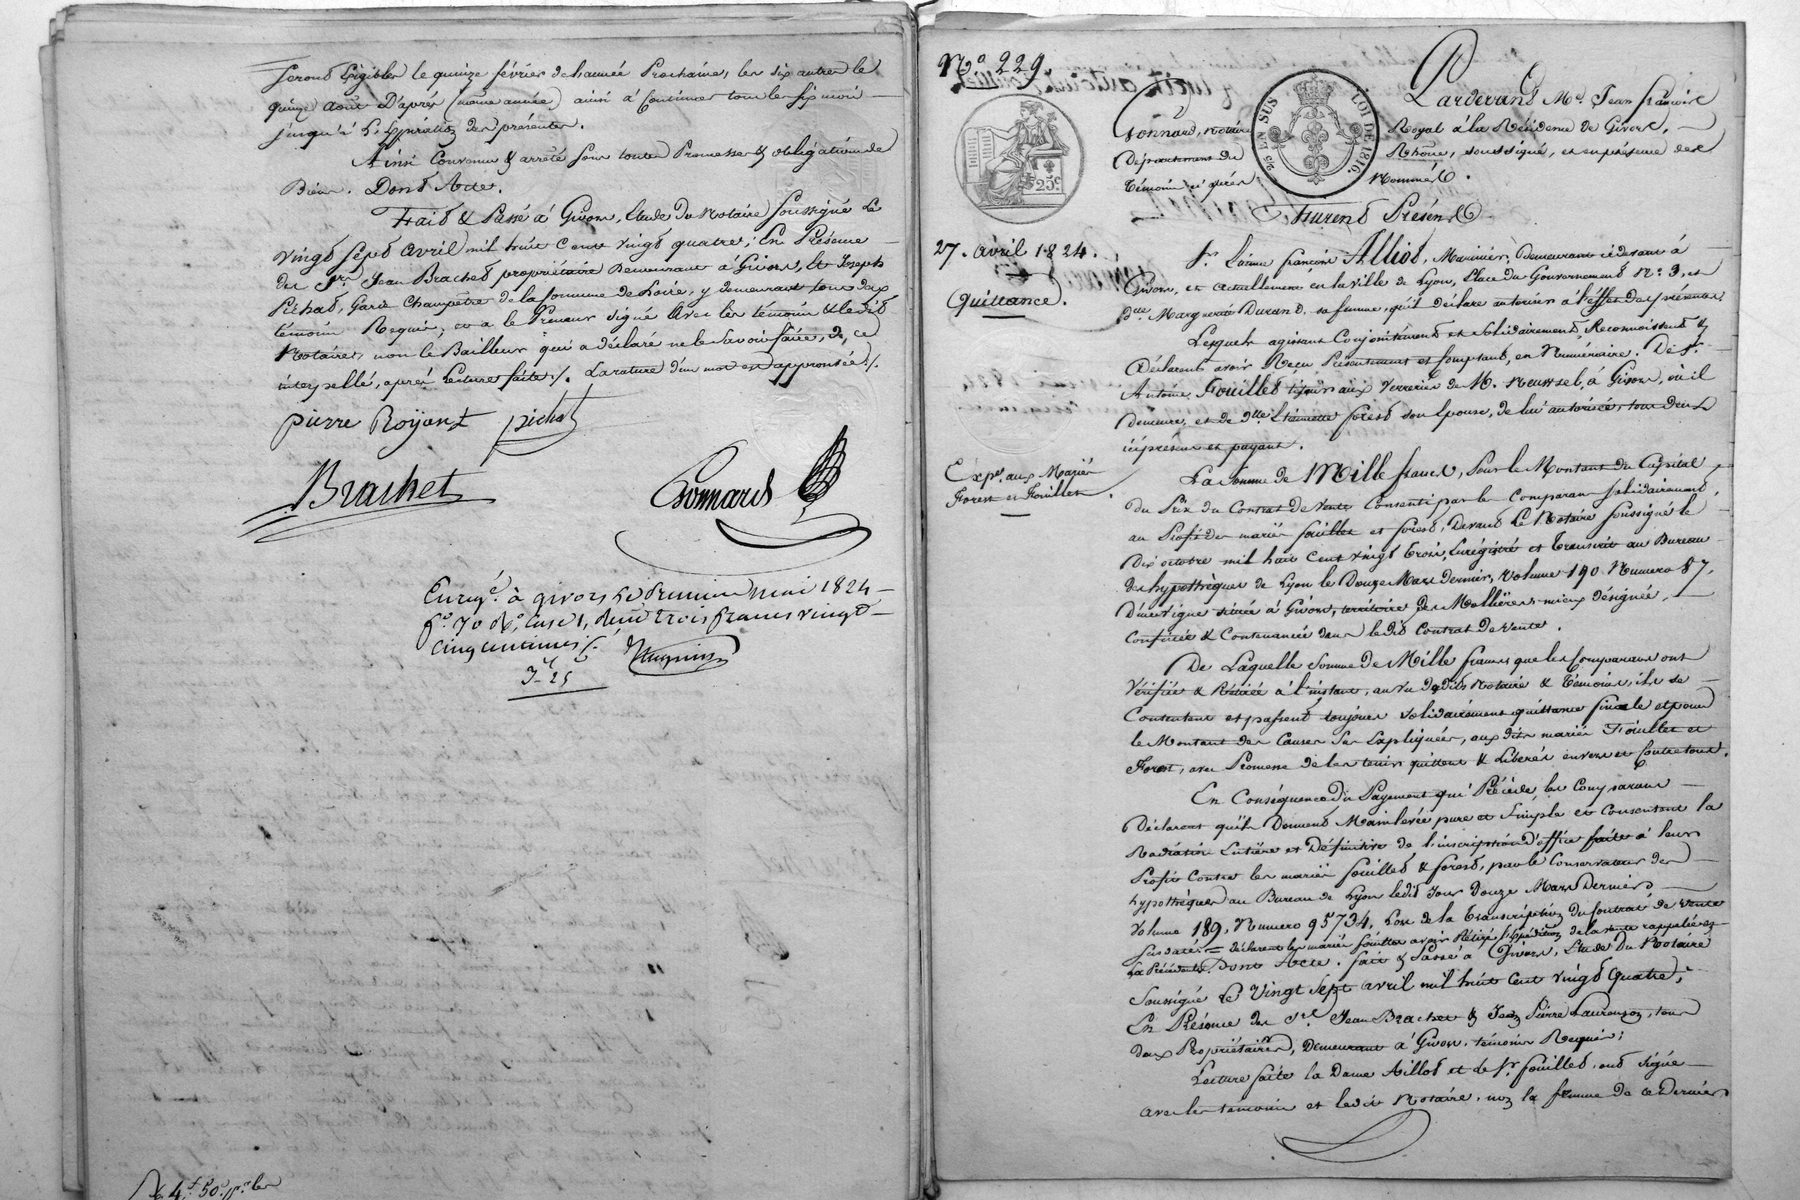 seront exigibles le quinze février de l'année Prochaine, les six autres le
quinze août D'après (même année) ainsi à Continuer tous les six mois
jusqu'à L'expiration des présentes.
Ainsi Convenu & arrêté sous toutes Promesses & obligations de
Biens. Dont Acte.
Fait & Passé à Givors, Etude du Notaire soussigné Le
vingt sept avril mil huit Cent vingt quatre; En Présence
des Srs Jean Brachet propriétaire Demeurant à Givors, & Joseph
Pichat, Garde Champêtre de la Commune de Loire, y demeurant tous deux
témoins Requis; et a le Preneur signé Avec les témoins & ledit
Notaire, non le Bailleur qui a déclaré ne le savoir faire, de ce
interpellé, après Lecture faite ./. La rature d'un mot est approuvée ./.
pierre Royont pichat
Brachet
Connard
Enregé. à givors le premier mai 1824
fo. 70 Ro. Case 1, reçu trois francs vingt
cinq centimes ./.
3 - 25
No. 229
25 EN SUS
LOI DE 1816.
25c
27. avril 1824.
Quittance.
Expon. aux Mariés
Forest et Fouillet.
Pardevant Me. Jean françois
Connard, Notaire Royal à la Résidence de Givors,
Département du Rhône, soussigné, et en présence des
témoins ci après Nommés.
Furent Présents
Sr. François Alliod, Marinier, demeurant ci devant à
Givors, et actuellement en la ville de Lyon, Place du Gouvernement No. 3, et
Due. Marguerite Durand, sa femme, qu'il déclare autoriser à l'effet des présentes
Lesquels agissant Conjointement et solidairement Reconnoissent &
Déclarent avoir Reçu Présentement et Comptant, en Numéraire. De Sr.
Antoine Fouillet aux verreries de M. Neuvesel, à Givors, où il
Demeure, et de Dlle. Etiennette forest son Epouse, de lui autorisée, tous deux
ici présens et payant.
La Somme de Mille francs, Pour le Montant du Capital
du Prix du Contrat de Vente Consenti par les Comparans solidairement
au Profit des mariés fouillet et forest, Devant Le Notaire soussigné le
Dix octobre mil huit cent vingt trois, Enregistré et transcrit au Bureau
des hypothèques de Lyon le Douze Mars dernier, Volume 190. Numero 87,
D'une vigne située à Givors, territoire des Mollières mieux désignée,
Confinée & Contenancée dans ledit Contrat de Vente.
De Laquelle Somme de Mille francs que les Comparans ont
Vérifiée & Retirée à l'instant, au vu desdits Notaire & témoins, ils se
Contentent et passent toujours solidairement quittance finale et pour
le Montant des Causes sus Expliquées, aux dits mariés Fouillet et
Forest, avec Promesse de les tenir quittent & Libérés envers et Contre tous.
En Conséquence du Payement qui Précède, les Comparans
Déclarent qu'ils Donnent Mainlevée pure et Simple et Consentent la
Radiation Entière et Définitive de l'inscription d'office faite à leur
Profit Contre les mariés fouillet & forest, par le Conservateur des
hypothèques au Bureau de Lyon ledit Jour Douze Mars Dernier,
Volume 189, Numero 95734, Lors de la Transcription du Contrat de vente
susdaté. = déclarent les mariés fouillet avoir Retiré l'Expédition de la vente rappelée ez-
La Présente. Dont Acte. fait & Passé à Givors, Etude Du Notaire
Soussigné Le Vingt sept avril mil huit Cent Vingt quatre;
En Présence des Srs. Jean Brachet & Jean Pierre Laurenson, tous
deux Propriétaires, Demeurant à Givors, témoins Requis;
Lecture faite la Dame Alliod et le Sr. fouillet ont signé
avec les temoins et ledit Notaire, non la femme de ce Dernier